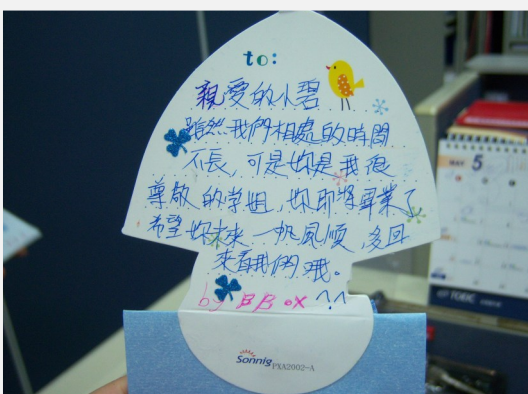 to:
親愛的小碧
雖然我們相處的時間
不長,可是妳是我很
尊敬的学姐,妳即將畢業了
希望妳未來一帆風順,多回
來看我們哦。
by BBox ^^
Sonnig PXA2002-A
MAY 5